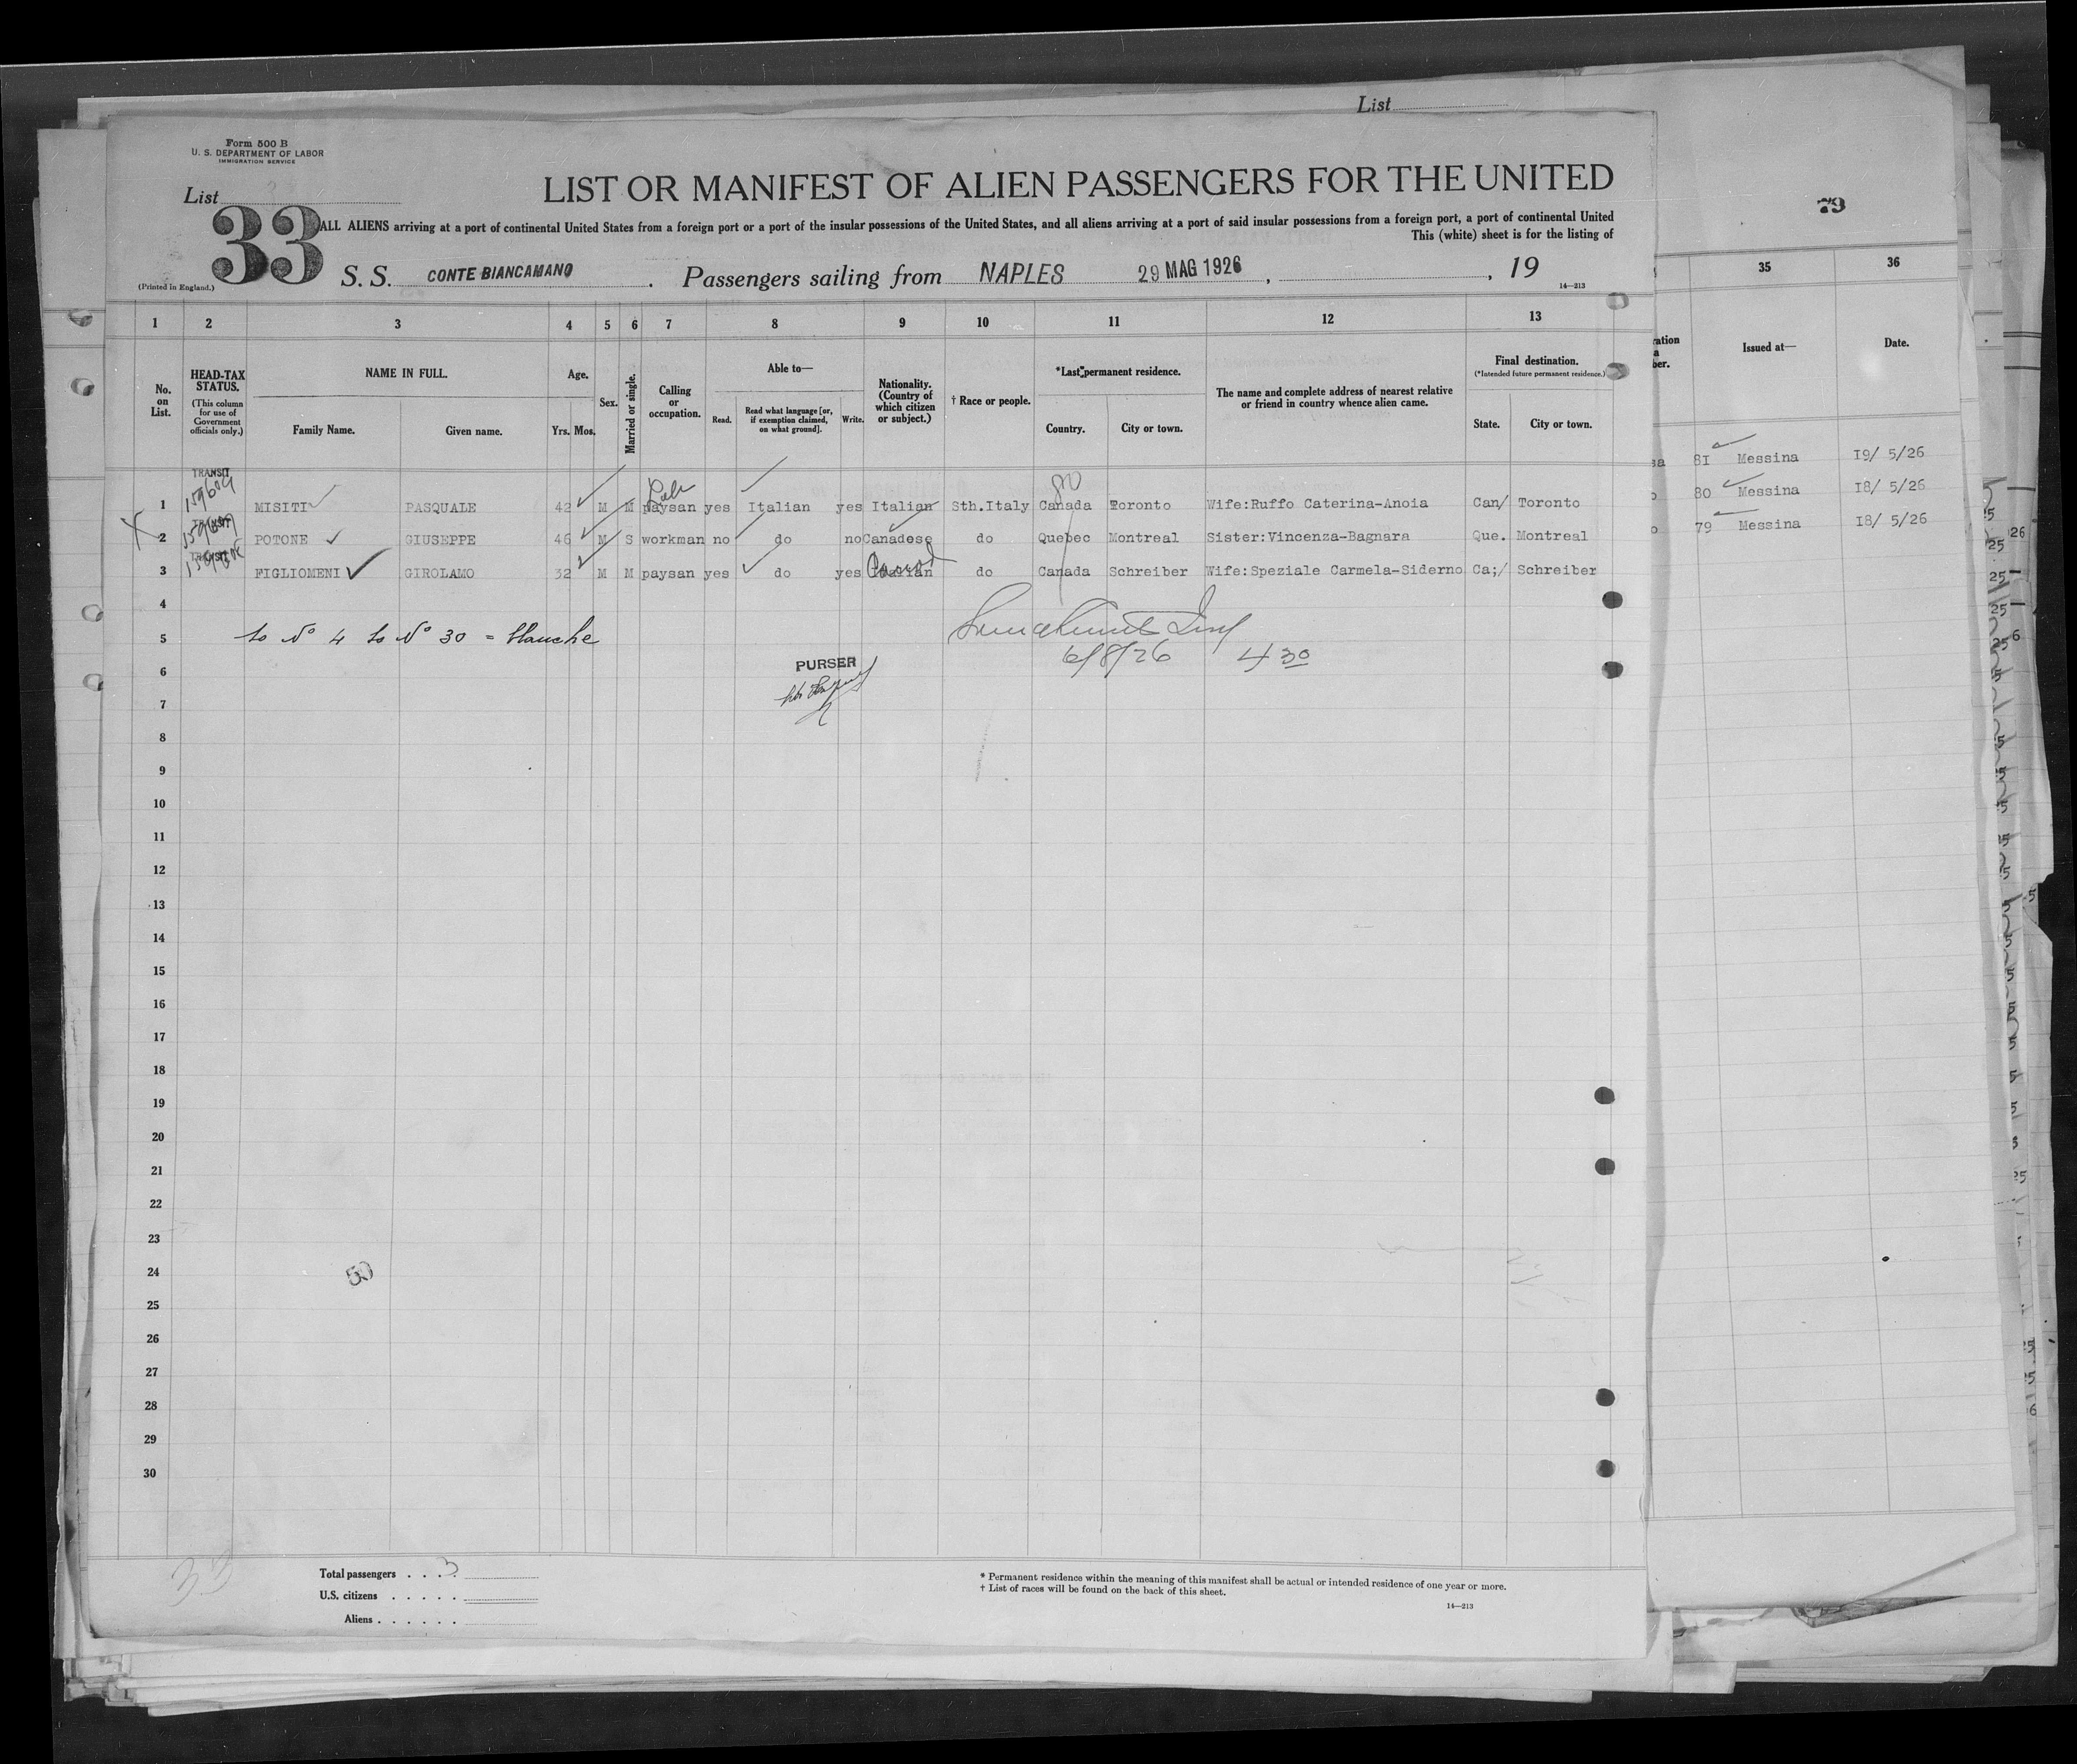 List
Form 500 B
U. S. DEPARTMENT OF LABOR
IMMIGRATION SERVICE
List
LIST OR MANIFEST OF ALIEN PASSENGERS FOR THE UNITED
33
ALL ALIENS arriving at a port of continental United States from a foreign port or a port of the insular possessions of the United States, and all aliens arriving at a port of said insular possessions from a foreign port, a port of continental United
This (white) sheet is for the listing of
(Printed in England.)
S. S. CONTE BIANCAMANO . Passengers sailing from NAPLES 29 MAG 1926 , , 19
14—213
1 2 3 4 5 6 7 8 9 10 11 12 13
No. on List.
HEAD-TAX STATUS.
(This column for use of Government officials only.)
NAME IN FULL.
Family Name. Given name.
Age.
Yrs. Mos.
Sex.
Married or single.
Calling or occupation.
Able to—
Read.
Read what language [or, if exemption claimed, on what ground].
Write.
Nationality. (Country of which citizen or subject.)
† Race or people.
*Last permanent residence.
Country. City or town.
The name and complete address of nearest relative or friend in country whence alien came.
Final destination.
(*Intended future permanent residence.)
State. City or town.
TRANSIT
1 MISITI PASQUALE 42 M M paysan yes Italian yes Italian Sth.Italy Canada Toronto Wife:Ruffo Caterina-Anoia Can/ Toronto
2 POTONE GIUSEPPE 46 M S workman no do no Canadese do Quebec Montreal Sister:Vincenza-Bagnara Que. Montreal
3 FIGLIOMENI GIROLAMO 32 M M paysan yes do yes Italian do Canada Schreiber Wife:Speziale Carmela-Siderno Ca;/ Schreiber
4
5 to No 4 to No 30 = blanche
6/8/26 4 30
6 PURSER
7
8
9
10
11
12
13
14
15
16
17
18
19
20
21
22
23
24
50
25
26
27
28
29
30
33
Total passengers . . . 3
U.S. citizens . . . . .
Aliens . . . . . .
* Permanent residence within the meaning of this manifest shall be actual or intended residence of one year or more.
† List of races will be found on the back of this sheet.
14—213
79
35 36
Issued at— Date.
81 Messina 19/ 5/26
80 Messina 18/ 5/26
79 Messina 18/ 5/26